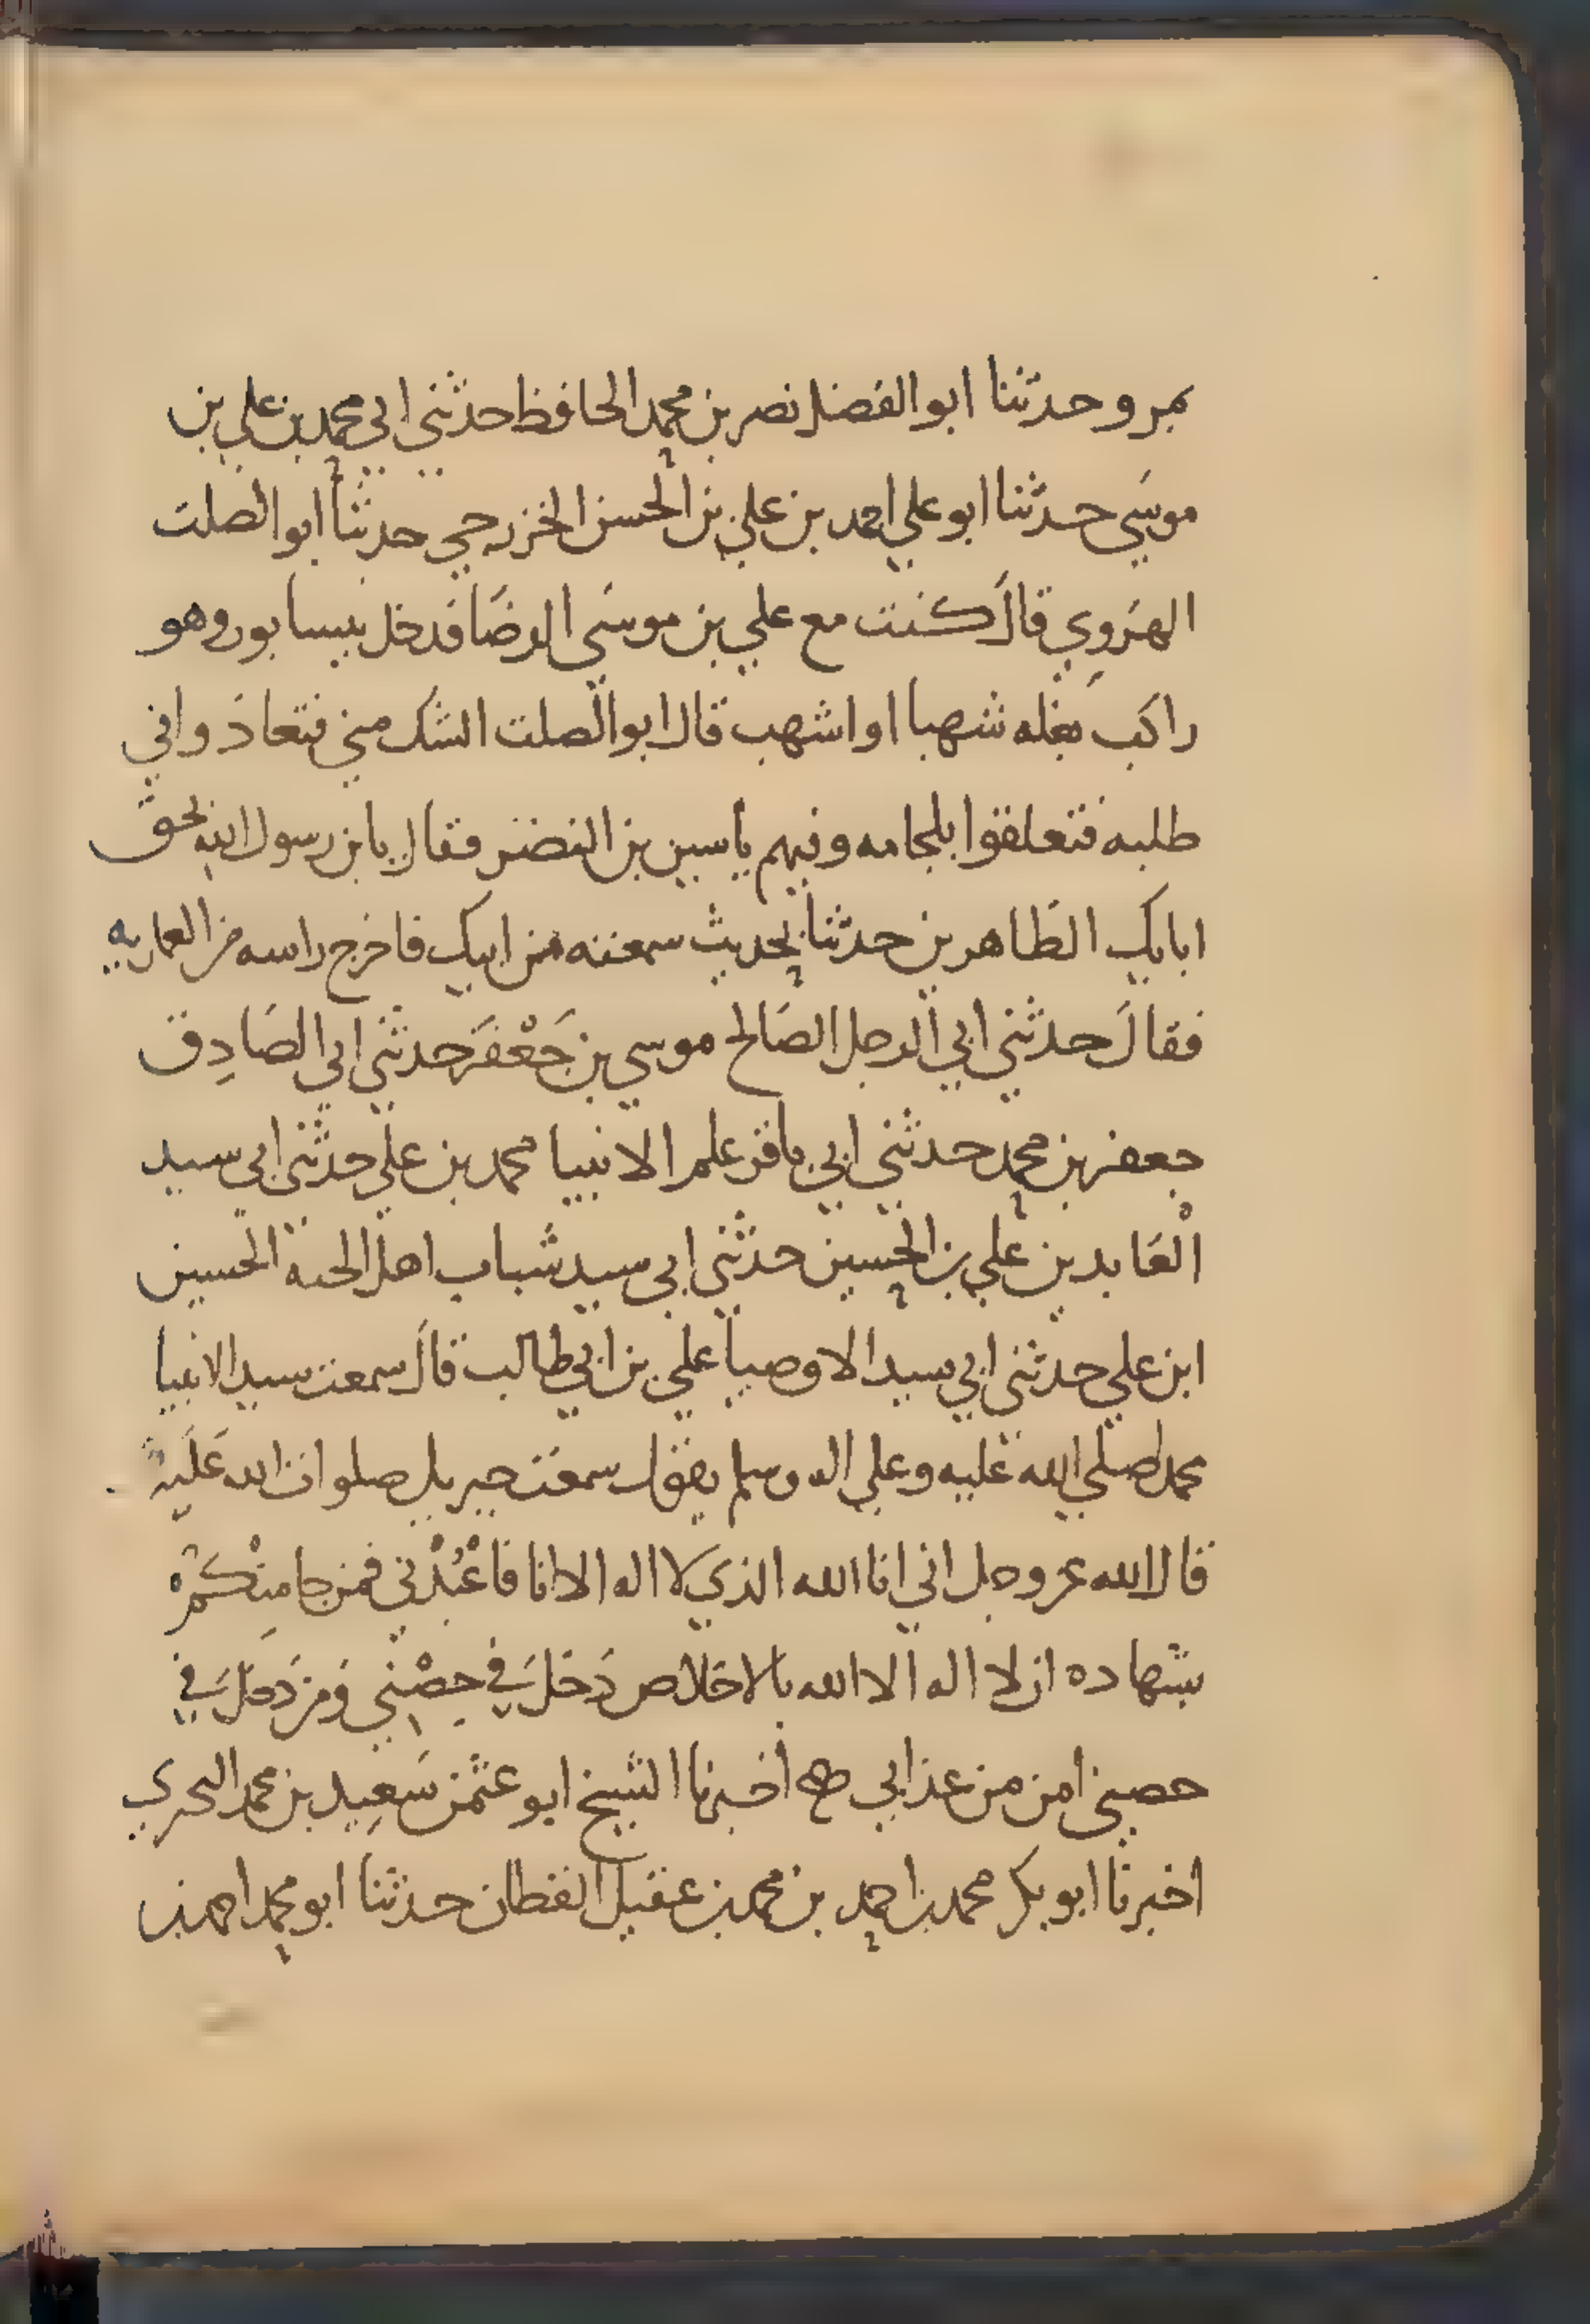 بمرو حدثنا ابو الفضل نصر بن محمد الحافظ حدثني ابي محمد بن علي بن
موسَي حدثنا ابو علي احمد بن علي بن الحسن الخزرجي حدثنا ابو الصلت
الهَرَوِي قالَ كنت مع علي بن موسَي الرضَا فدخل نيسابور وهو
راكب بغله شهبا او اشهب قال ابو الصلت الشك مني فتعاذ واني
طلبه فتعلقوا بلجامه وفيهم ياسين بن النضر فقال يا بن رسول الله بحق
ابايك الطَاهرين حدثنا بحديث سمعته من ابيك فاخرج راسه من العماريه
فقالَ حدثني ابي الرجل الصَالح موسي بن جَعْفَر حدثني ابي الصَادِق
جعفر بن محمد حدثني ابي باقر علم الانبيا محمد بن علي حدثني ابي سيد
الْعَابدين علي بن الحسين حدثني ابي سيد شباب اهل الجنه الحسين
ابن علي حدثني ابي سيد الاوصيا علي بن ابي طالب قالَ سمعت سيد الانبيا
محمد صلي الله عليه وعلي اله وسلم يقول سمعت جبريل صلوات الله عَلَيه
قال الله عز وجل اني انا الله الذي لا اله الا انا فاعْبُدْني فمن جا مِنْكُمْ
بشهاده ان لا اله الا الله بالاخلاص دَخلَ في حِصْنِي وَمن دَخلَ في
حصني امن من عذابي صح اخبرنا الشيخ ابو عثمن سَعِيد بن محمد البحري
اخبرنا ابو بكر محمد بن احمد بن محمد بن عقيل القطان حدثنا ابو محمد احمد بن